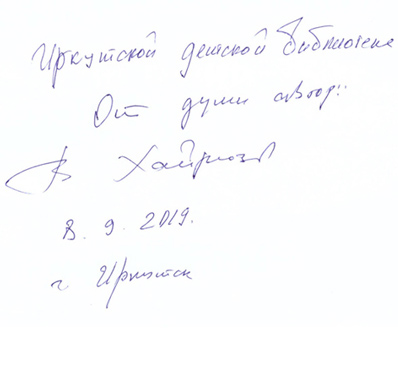 Иркутской детской библиотеке
От души автор!!
В Хайрюзов
8. 9. 2019.
г Иркутск